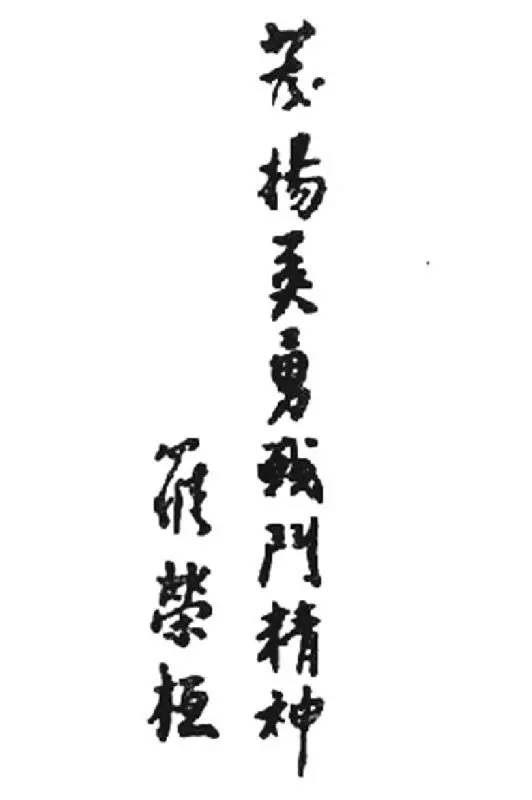 发揚英勇战鬥精神
羅榮桓